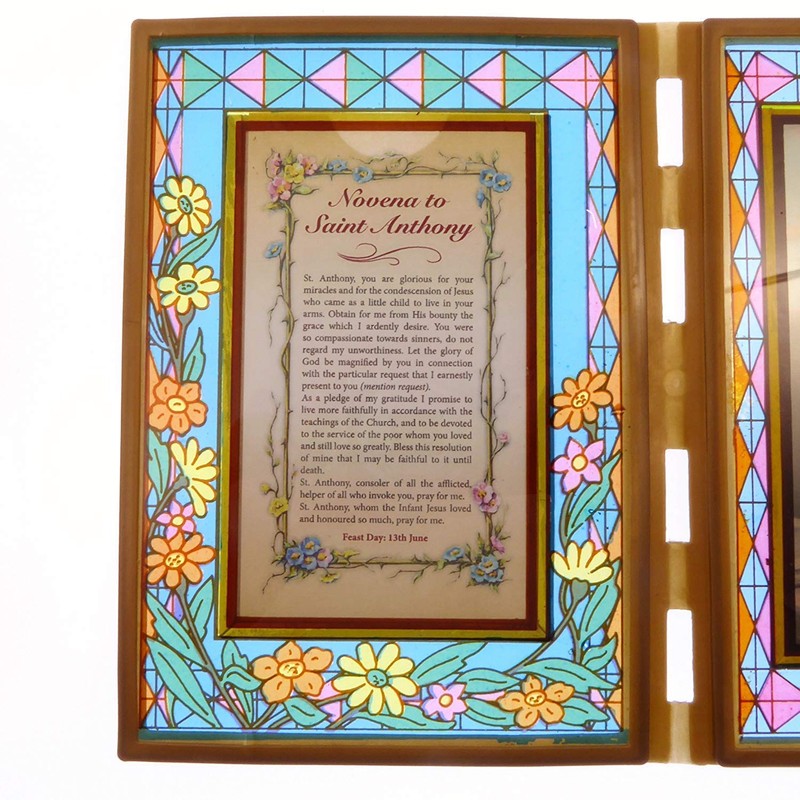 Novena to
Saint Anthony
St. Anthony, you are glorious for your
miracles and for the condescension of Jesus
who came as a little child to live in your
arms. Obtain for me from His bounty the
grace which I ardently desire. You were
so compassionate towards sinners, do not
regard my unworthiness. Let the glory of
God be magnified by you in connection
with the particular request that I earnestly
present to you (mention request).
As a pledge of my gratitude I promise to
live more faithfully in accordance with the
teachings of the Church, and to be devoted
to the service of the poor whom you loved
and still love so greatly. Bless this resolution
of mine that I may be faithful to it until
death.
St. Anthony, consoler of all the afflicted,
helper of all who invoke you, pray for me.
St. Anthony, whom the Infant Jesus loved
and honoured so much, pray for me.
Feast Day: 13th June